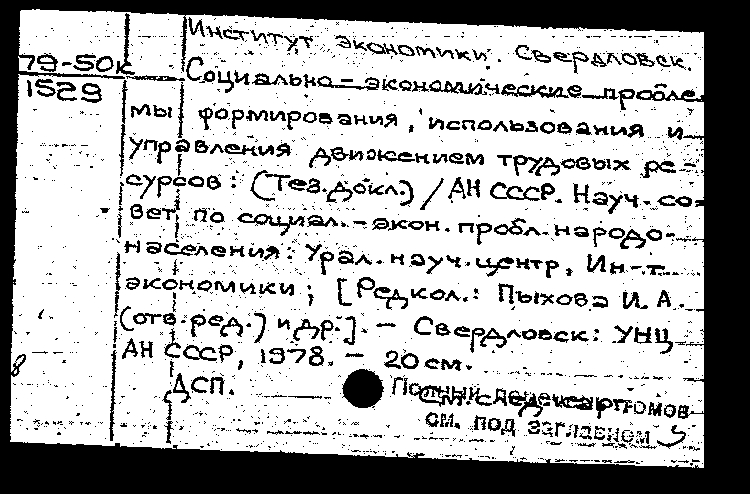 Институт экономики. Свердловск.
79-50к
1529
Социально-экономические пробле-
мы формирования, использования и
управления движением трудовых ре-
сурсов: (Тез. докл.) / АН СССР. Науч. со-
вет по социал.-экон. пробл. народо-
населения: Урал. науч. центр, Ин-т
экономики; [Редкол.: Пыхова И.А.
(отв. ред.) и др.]. – Свердловск: УНЦ
АН СССР, 1978. – 20 см.
8
ДСП.
Полный перечень томов
см. под заглавном
См. след. карт.